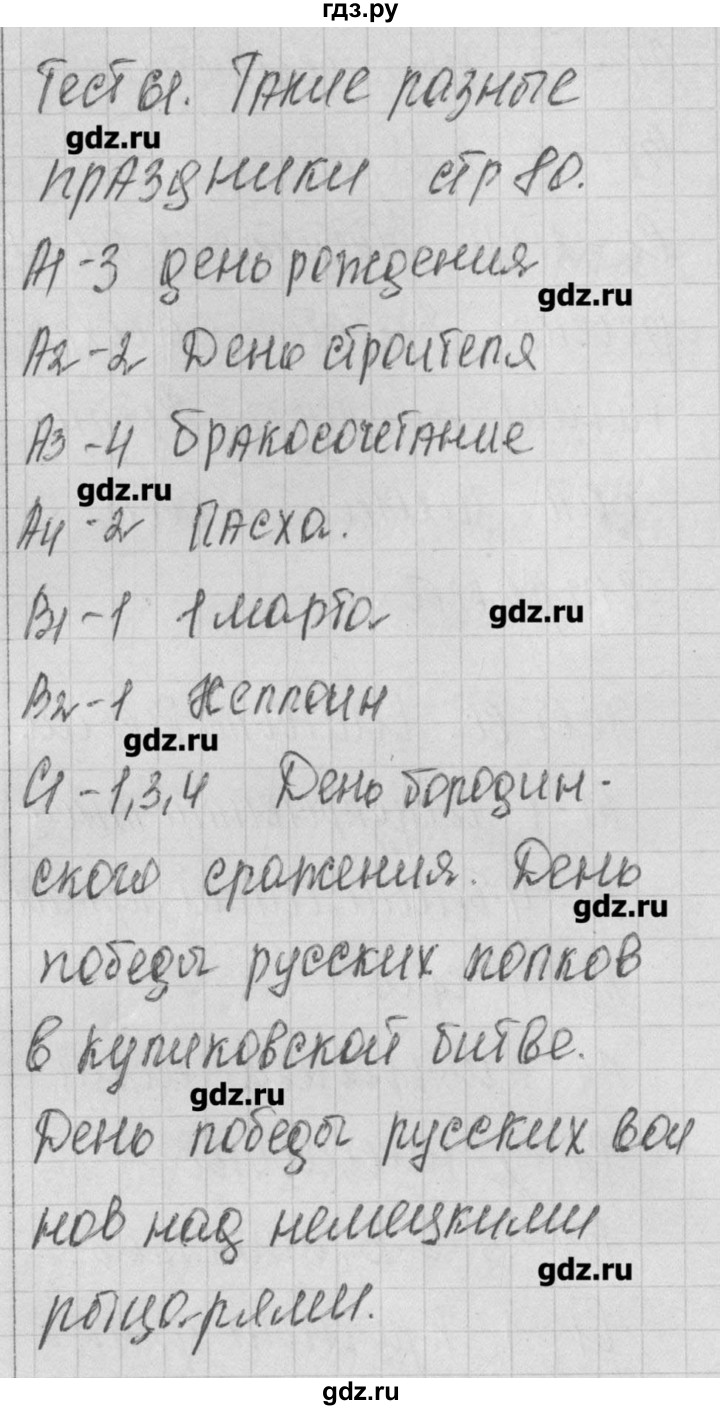 гдз.ру
Тест 61. Такие разные
gdz.ru
праздники стр 80.
А1-3 день рождения
gdz.ru
А2-2 День строителя
А3-4 бракосочетание
gdz.ru
А4-2 Пасха.
В1-1 1 марта
gdz.ru
В2-1 Хеллоин
gdz.ru
С1-1,3,4 День бородин-
ского сражения. День
gdz.ru
победы русских полков
в куликовской битве.
gdz.ru
День победы русских вои
нов над немецкими
gdz.ru
рыцарями.
gdz.ru